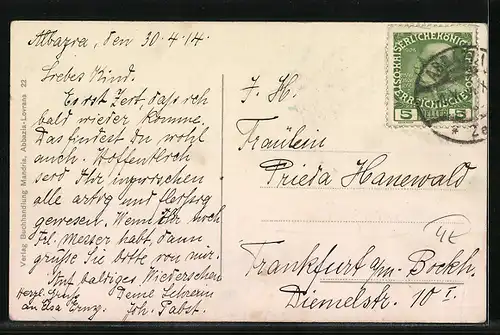 Abbazia, den 30.4.14.
Liebes Kind.
Es ist Zeit, daß ich
bald wieder komme.
Das findest Du wohl
auch. Hoffentlich
seid Ihr inzwischen
alle artig und fleißig
gewesen. Wenn Ihr noch
Frl. Messer habt, dann
grüße Sie bitte von mir.
Auf baldiges Wiedersehen
Deine Lehrerin
Joh. Pabst.
Herzl. Gruß
an Elsa
Verlag Buchhandlung Mandria, Abbazia-Lovrana 22
KAISERLICHE KÖNIGL
ÖSTERREICHISCHE
5 HELLER 5
Fräulein
Frieda Hanewald
4E
Frankfurt a/m-Bockh.
Diemelstr. 10 I.